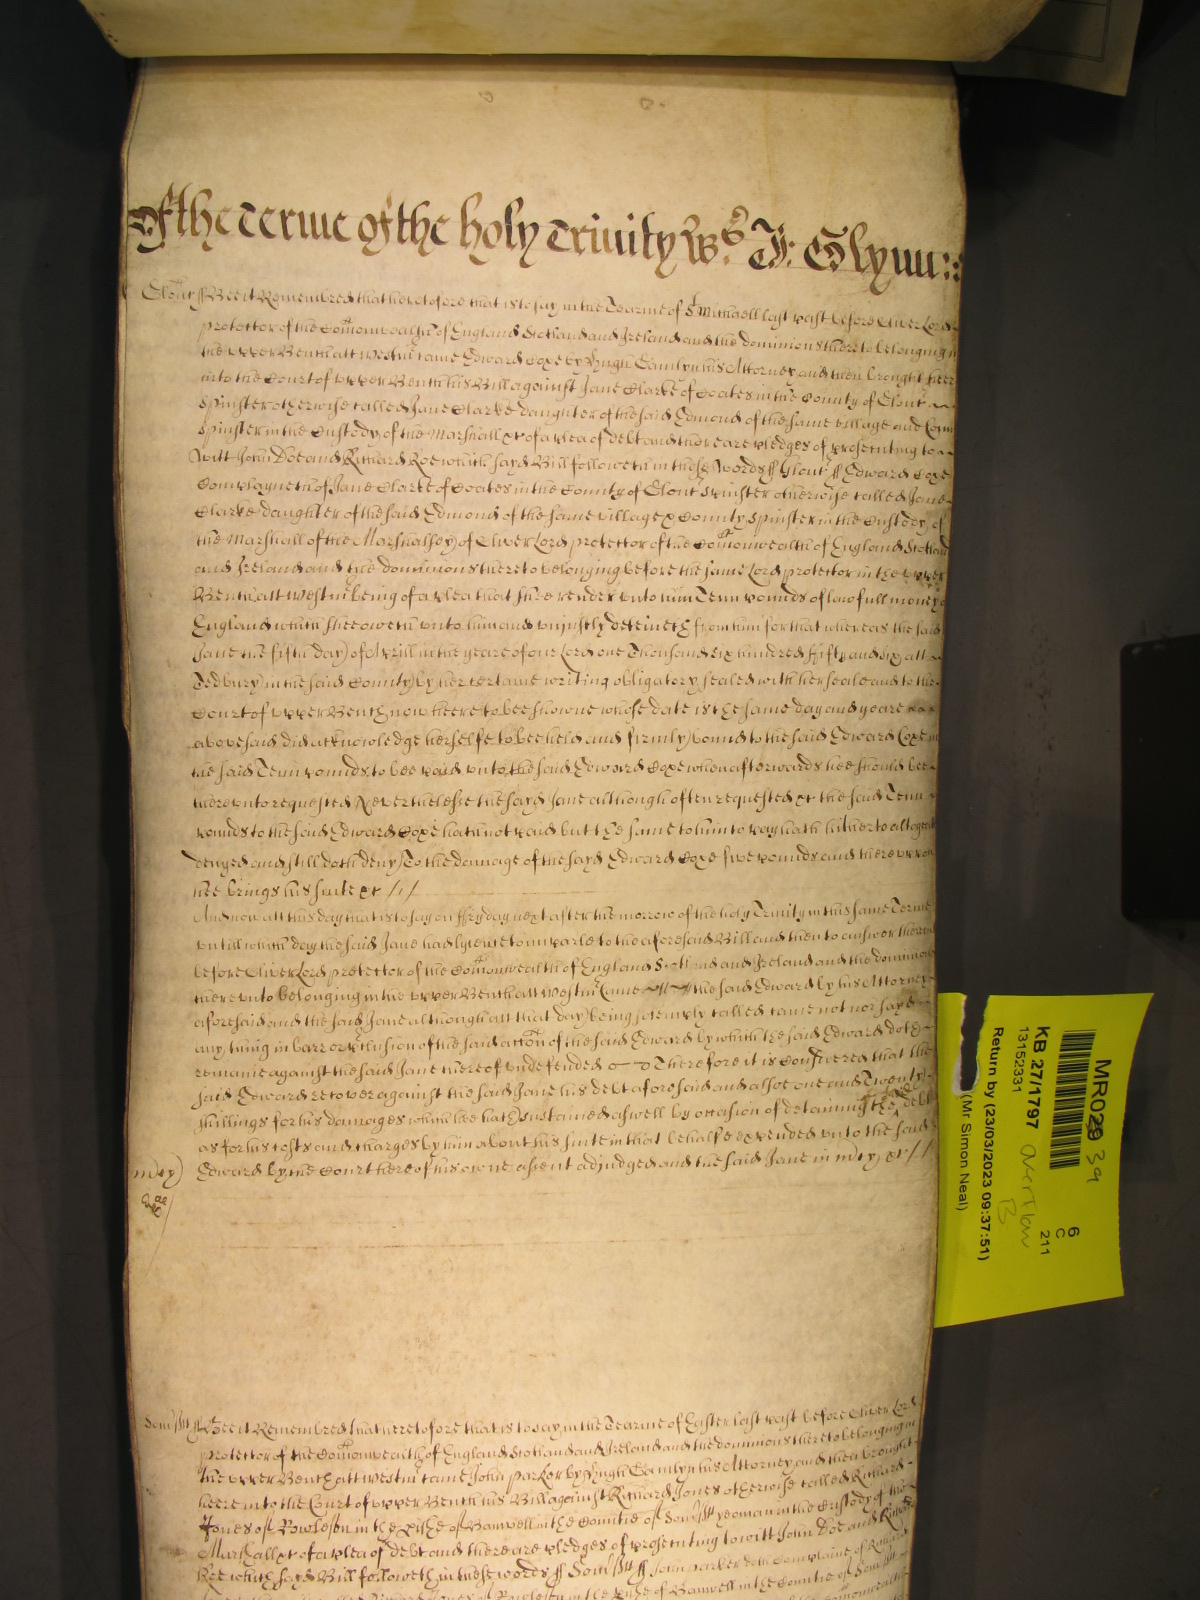 Of the Terme of the holy Trinity Ws. J: Glynn::
Glouc ss Bee it Remembred that heretofore that is to say in the Tearme of St Michaell last past before Oliver Lord
protector of the Comonwealth of England Scotland and Ireland and the dominions thereto belonging in
the upper Bench att Westm came Edward Coxe by Hugh Camlyn his Attorney and then brought heere
into the Court of upper Bench his Bill against Jane Clarke of Coates in the County of Glouc
Spinster otherwise called Jane Clarke daughter of the said Edmond of the same village and County
Spinster in the Custody of the Marshall &c of a plea of debt and there are pledges of prosecuting to
witt John Doe and Richard Roe which sayd Bill followeth in these words ss Glouc ss Edward Coxe
Complayneth of Jane Clarke of Coates in the County of Glouc Spinster otherwise called Jane
Clarke daughter of the said Edmond of the same village & County Spinster in the Custody of
the Marshall of the Marshalsey of Oliver Lord protector of the Comonwealth of England Scotland
and Ireland and the dominions thereto belonging before the same Lord protector in the upper
Bench att Westm being of a plea that shee render unto him Tenn pounds of lawfull money of
England which shee oweth unto him and unjustly deteineth from him for that whereas the said
Jane the fifth day of Aprill in the yeare of our Lord one Thousand six hundred fifty and six att
Tedbury in the said County by her certaine writing obligatory sealed with her seale and to the
Court of upper Bench now heere to bee showne whose date is the same day and yeare
abovesaid did acknowledge herselfe to bee held and firmly bound to the said Edward Coxe in
the said Tenn pounds to bee paid unto the said Edward Coxe when afterwards hee should bee
thereunto requested Neverthelesse the sayd Jane although often requested &c the said Tenn
pounds to the said Edward Coxe hath not paid but the same to him to pay hath hitherto altogeth
denyed and still doth deny To the damage of the sayd Edward Coxe five pounds and thereupon
hee brings his suite &c //
And now att this day that is to say on ffryday next after the morrow of the holy Trinity in this same Terme
untill which day the said Jane had lycence to imparle to the aforesaid Bill and then to answer
before Oliver Lord protector of the Comonwealth of England Scotland and Ireland and the dominions
thereunto belonging in the upper Bench att Westm Came the said Edward by his Attorney
aforesaid and the said Jane although att that day being solempnly called came not nor sayd
any thing in barr or preclusion of the said accon of the said Edward by which the said Edward doth
remaine against the said Jane thereof undefended Therefore it is Considered that the
said Edward recover against the said Jane his debt aforesaid and alsoe one and Twenty
shillings for his damages which hee hath sustained aswell by occasion of detaining the debt
as for his costs and charges by him about his suite in that behalfe expended unto the said
mcy) Edward by the Court here of his owne assent adjudged and the said Jane in mcy &c //
Somst ss Bee it Remembred that heretofore that is to say in the Tearme of Easter last past before Oliver Lord
protector of the Comonwealth of England Scotland and Ireland and the dominions thereto belonging in
the upper Bench att Westm came John Parker by Hugh Camlyn his Attorney and then brought
heere into the Court of upper Bench his Bill against Richard Jones otherwise called Richard
Jones of Rowleson in the pishe of Banwell in the Countie of Somst yeoman in the Custody of the
Marshall &c of a plea of debt and there are pledges of prosecuting to witt John Doe and Richard
Roe which sayd Bill followeth in these words ss Somst ss John Parker doth Complaine of Richard
Jones of Rowleson in the pishe of Banwell in the Countie of Somst
MR029 39
KB 27/1797
13152331
overflow
B
6
C
211
Return by (23/03/2023 09:37:51)
(Mr Simon Neal)